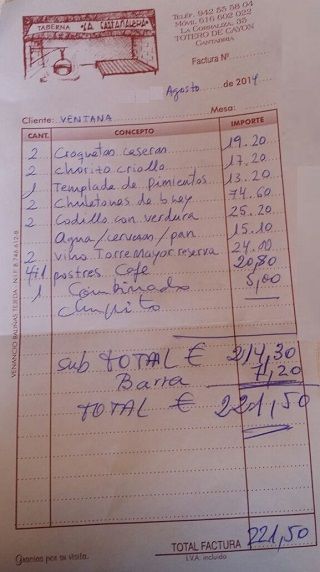 TABERNA "LA CASTAÑALERA"
TELEF. 942 55 58 04
MÓVIL 616 602 022
LA CORRALIZA, 35
TOTERO DE CAYÓN
CANTABRIA
Factura Nº
Agosto de 2014
Mesa:
Cliente: VENTANA
CANT. CONCEPTO IMPORTE
2 Croquetas caseras 19.20
2 chorito criollo 17.20
1 Templada de Pimientos 13.20
2 Chuletones de buey 74.60
2 Codillo con verdura 25.20
Agua/cervezas/pan 15.10
2 Vino Torre Mayor reserva 24.00
4+1 postres Cafe 20,80
1 Combinado 5,00
Chupito
Sub TOTAL € 214,30
Barra 7,20
TOTAL € 221,50
TOTAL FACTURA 221,50
I.V.A. incluido
Gracias por su visita.